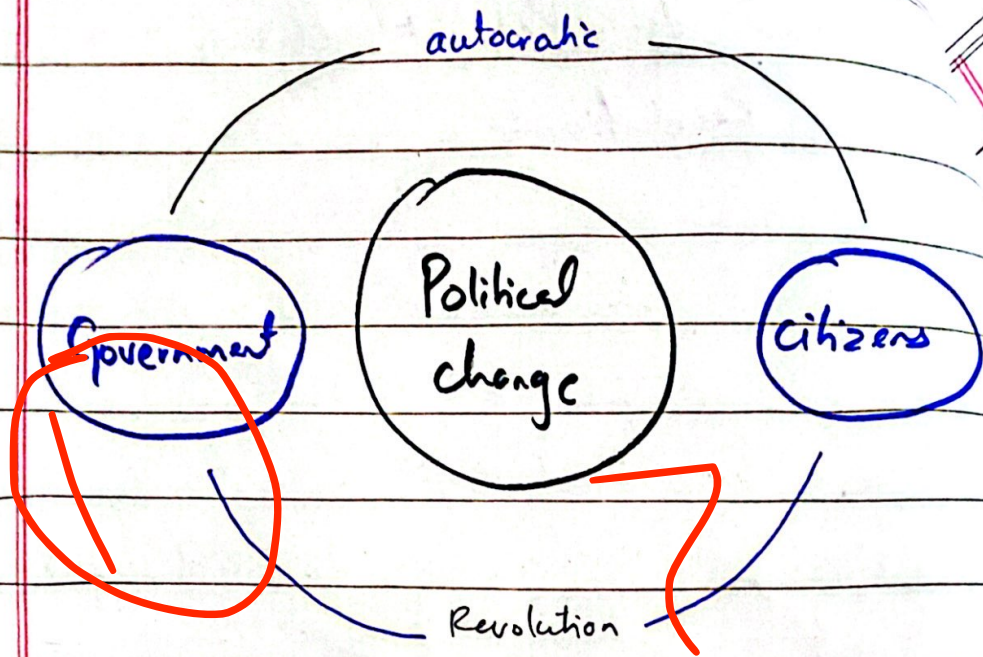 autocratic
Government
Political
change
citizens
Revolution